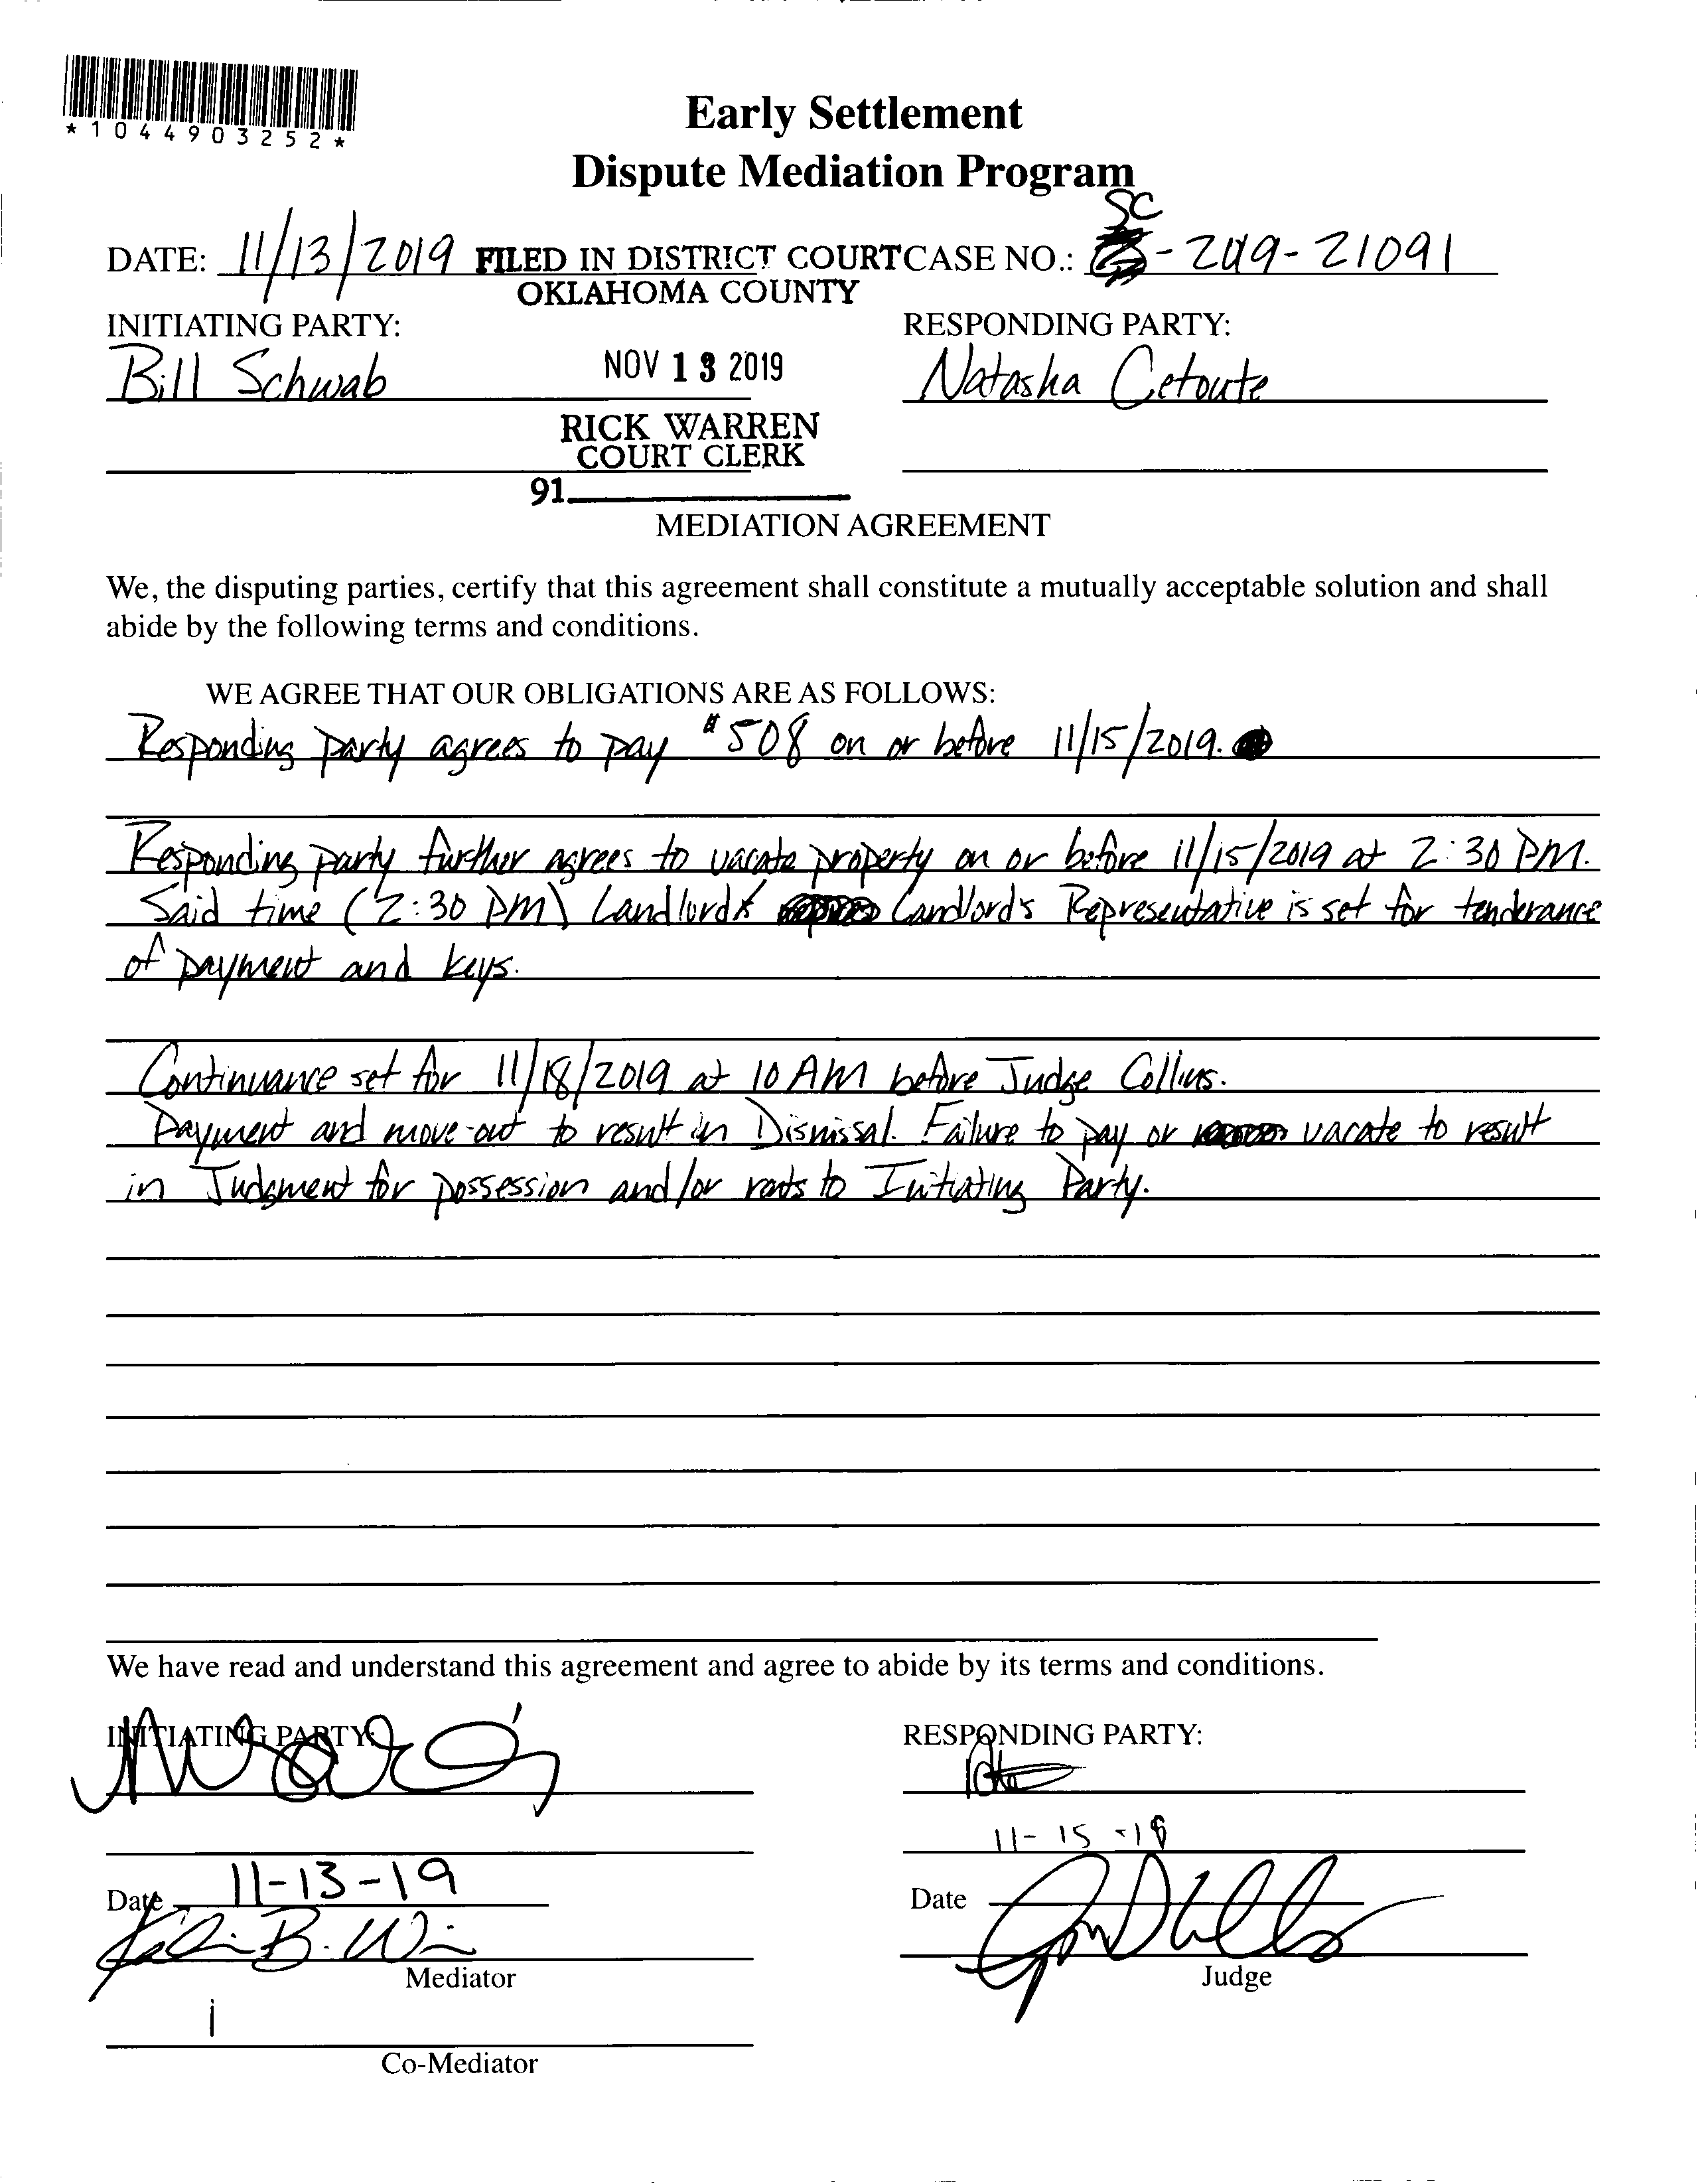 *1044903252*
Early Settlement
Dispute Mediation Program
SC
DATE: 11/13/2019 FILED IN DISTRICT COURT CASE NO.: -2019-21091
OKLAHOMA COUNTY
INITIATING PARTY: RESPONDING PARTY:
Bill Schwab NOV 13 2019 Natasha Cetoute
RICK WARREN
COURT CLERK
91
MEDIATION AGREEMENT
We, the disputing parties, certify that this agreement shall constitute a mutually acceptable solution and shall
abide by the following terms and conditions.
WE AGREE THAT OUR OBLIGATIONS ARE AS FOLLOWS:
Responding party agrees to pay $508 on or before 11/15/2019.
Responding party further agrees to vacate property on or before 11/15/2019 at 2:30 PM.
Said time (2:30 PM) Landlord Landlord's Representative is set for tenderance
of payment and keys.
Continuance set for 11/18/2019 at 10 AM before Judge Collins.
Payment and move-out to result in Dismissal. Failure to pay or vacate to result
in Judgment for possession and/or rents to Initiating Party.
We have read and understand this agreement and agree to abide by its terms and conditions.
INITIATING PARTY: RESPONDING PARTY:
11-15-19
Date 11-13-19 Date
Mediator Judge
Co-Mediator